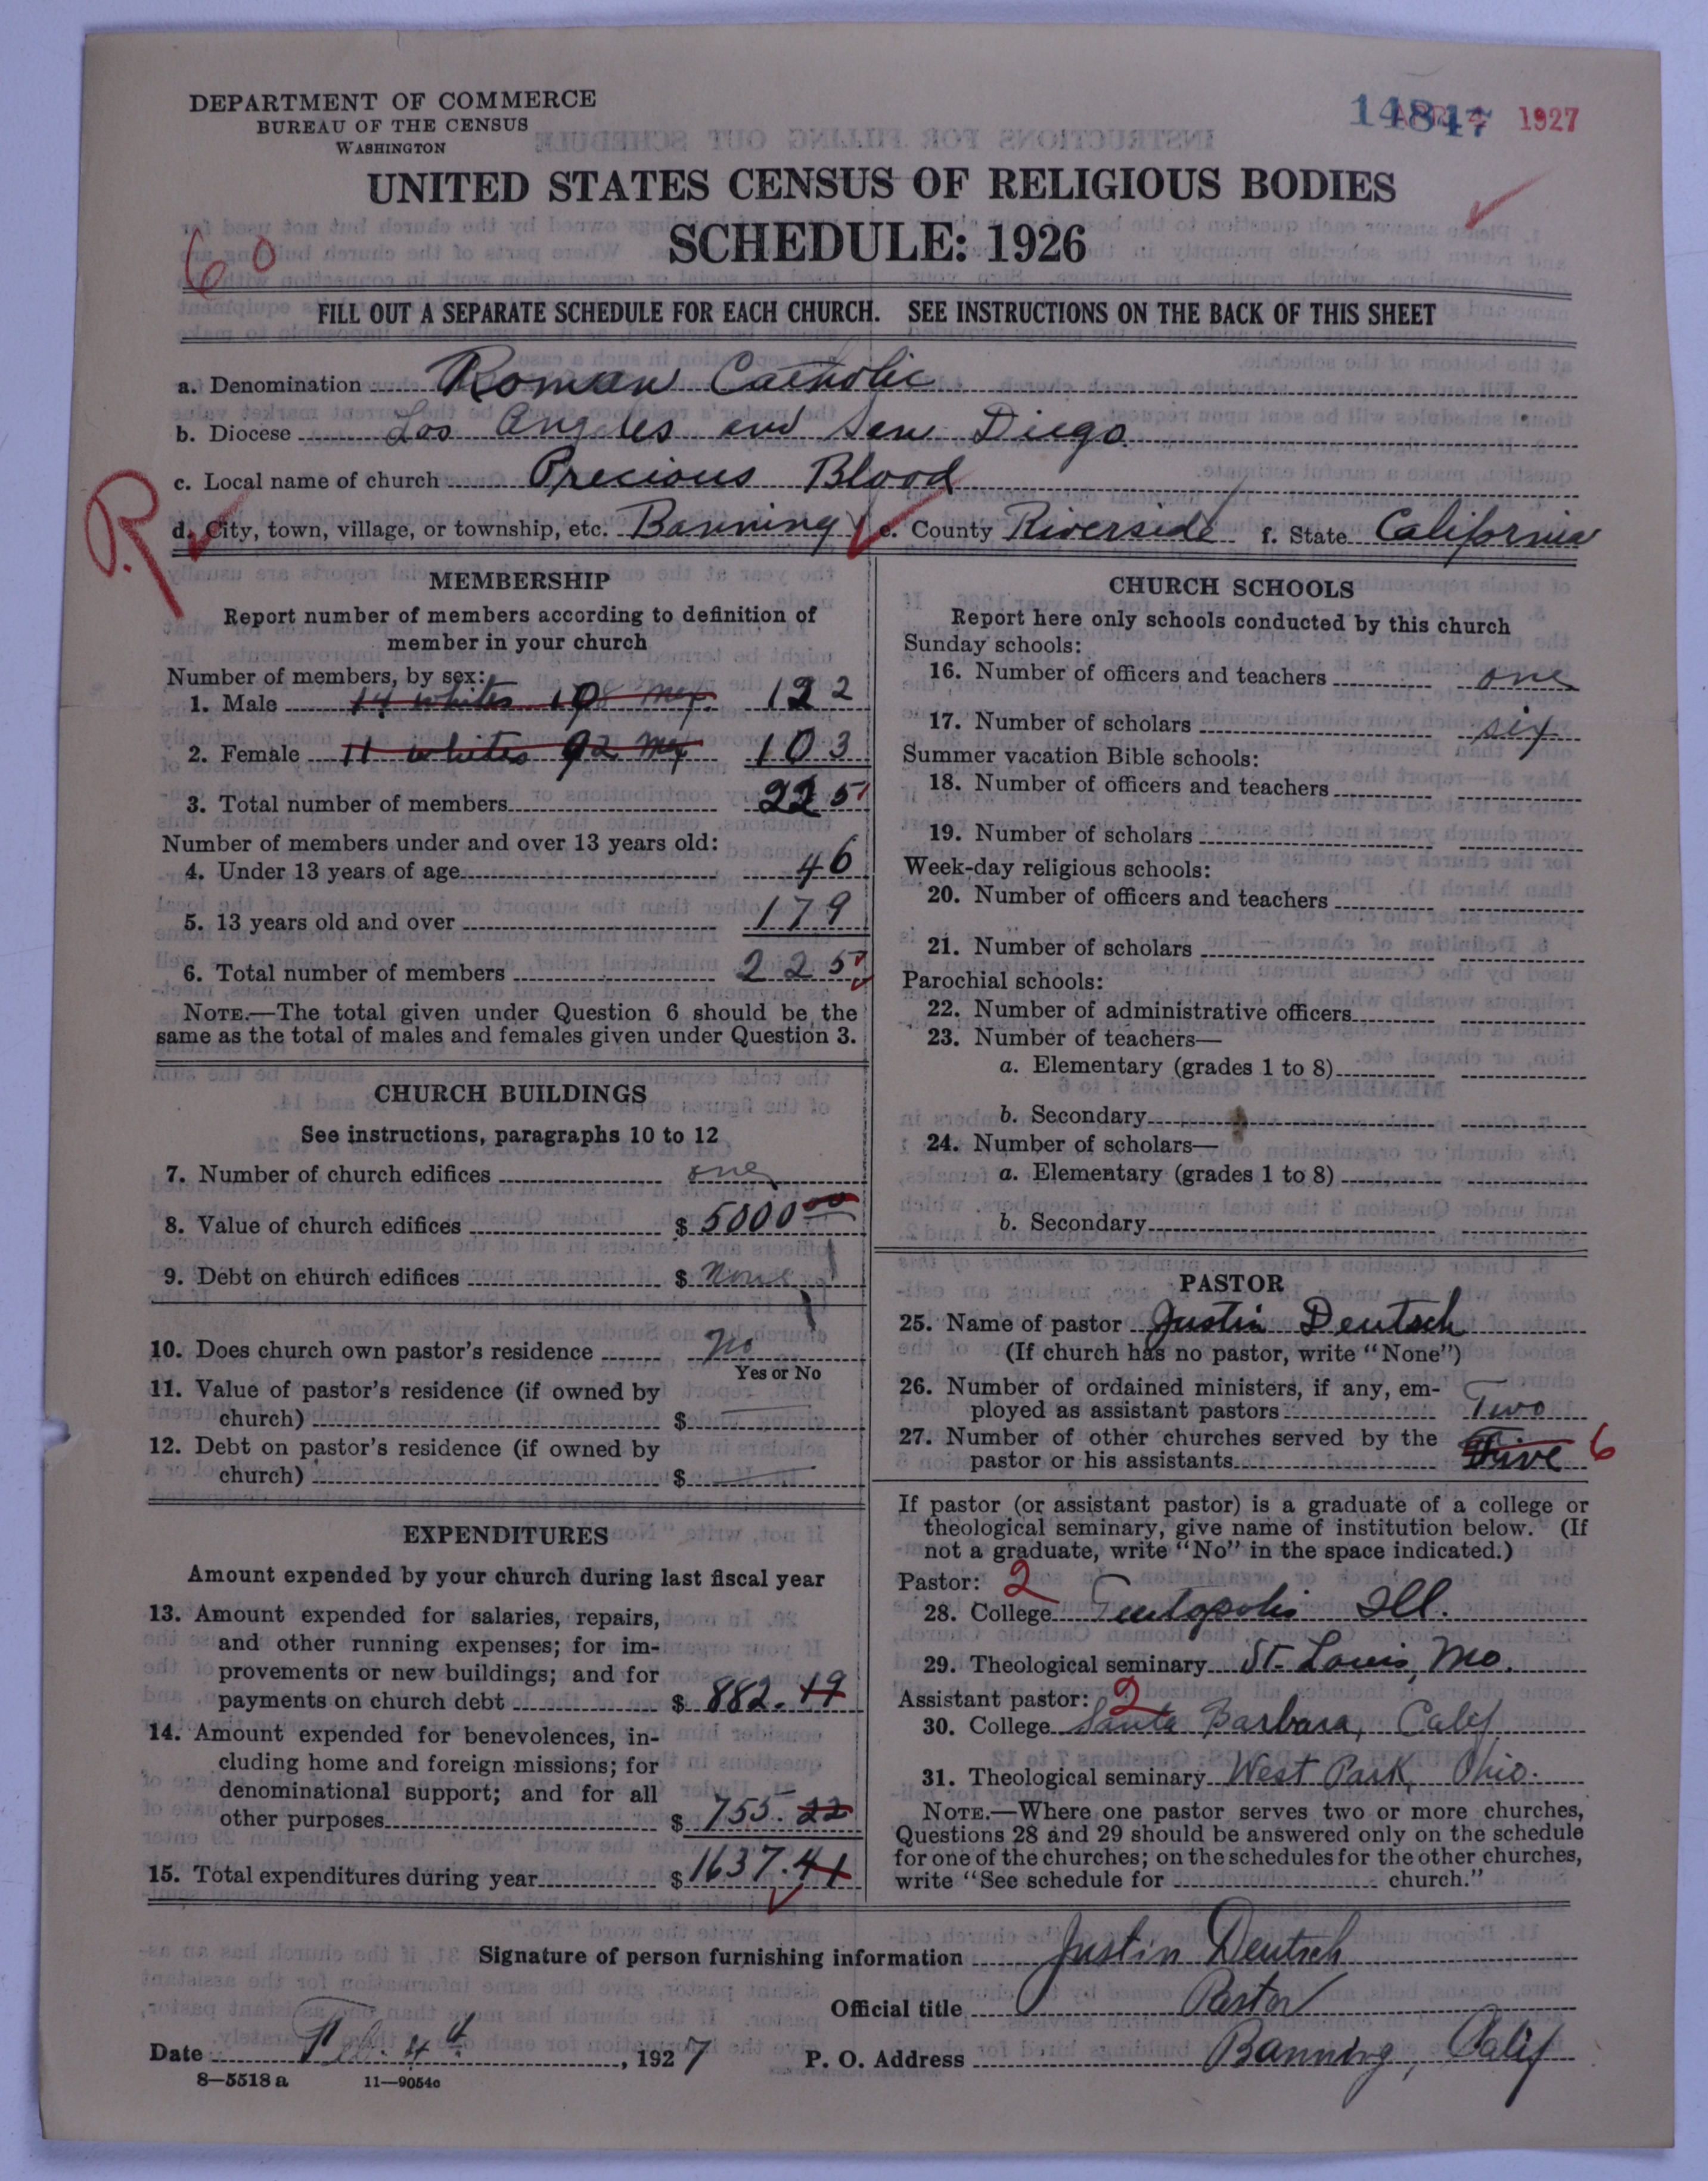 DEPARTMENT OF COMMERCE
BUREAU OF THE CENSUS
WASHINGTON
14847 1927
UNITED STATES CENSUS OF RELIGIOUS BODIES
SCHEDULE: 1926
60
FILL OUT A SEPARATE SCHEDULE FOR EACH CHURCH. SEE INSTRUCTIONS ON THE BACK OF THIS SHEET
a. Denomination Roman Catholic
b. Diocese Los Angeles and San Diego
c. Local name of church Precious Blood
R
d. City, town, village, or township, etc. Banning e. County Riverside f. State California
MEMBERSHIP
Report number of members according to definition of
member in your church
Number of members, by sex:
1. Male 14 whites 108 Mex. 122
2. Female 11 whites 92 Mex 103
3. Total number of members 225
Number of members under and over 13 years old:
4. Under 13 years of age 46
5. 13 years old and over 179
6. Total number of members 225
NOTE.—The total given under Question 6 should be the
same as the total of males and females given under Question 3.
CHURCH BUILDINGS
See instructions, paragraphs 10 to 12
7. Number of church edifices one
8. Value of church edifices $ 5000 00
9. Debt on church edifices $ None
10. Does church own pastor's residence No
Yes or No
11. Value of pastor's residence (if owned by
church) $
12. Debt on pastor's residence (if owned by
church) $
EXPENDITURES
Amount expended by your church during last fiscal year
13. Amount expended for salaries, repairs,
and other running expenses; for im-
provements or new buildings; and for
payments on church debt $ 882.19
14. Amount expended for benevolences, in-
cluding home and foreign missions; for
denominational support; and for all
other purposes $ 755.22
15. Total expenditures during year $ 1637.41
CHURCH SCHOOLS
Report here only schools conducted by this church
Sunday schools:
16. Number of officers and teachers one
17. Number of scholars six
Summer vacation Bible schools:
18. Number of officers and teachers
19. Number of scholars
Week-day religious schools:
20. Number of officers and teachers
21. Number of scholars
Parochial schools:
22. Number of administrative officers
23. Number of teachers—
a. Elementary (grades 1 to 8)
b. Secondary
24. Number of scholars—
a. Elementary (grades 1 to 8)
b. Secondary
PASTOR
25. Name of pastor Justin Deutsch
(If church has no pastor, write "None")
26. Number of ordained ministers, if any, em-
ployed as assistant pastors Two
27. Number of other churches served by the
pastor or his assistants Five 6
If pastor (or assistant pastor) is a graduate of a college or
theological seminary, give name of institution below. (If
not a graduate, write "No" in the space indicated.)
Pastor: 2
28. College Teutopolis Ill.
29. Theological seminary St. Louis, Mo.
Assistant pastor: 2
30. College Santa Barbara, Calif
31. Theological seminary West Park, Ohio.
NOTE.—Where one pastor serves two or more churches,
Questions 28 and 29 should be answered only on the schedule
for one of the churches; on the schedules for the other churches,
write "See schedule for church."
Signature of person furnishing information Justin Deutsch
Official title Pastor
Date Feb. 4th, 1927 P. O. Address Banning, Calif
8—5518 a 11—9054c